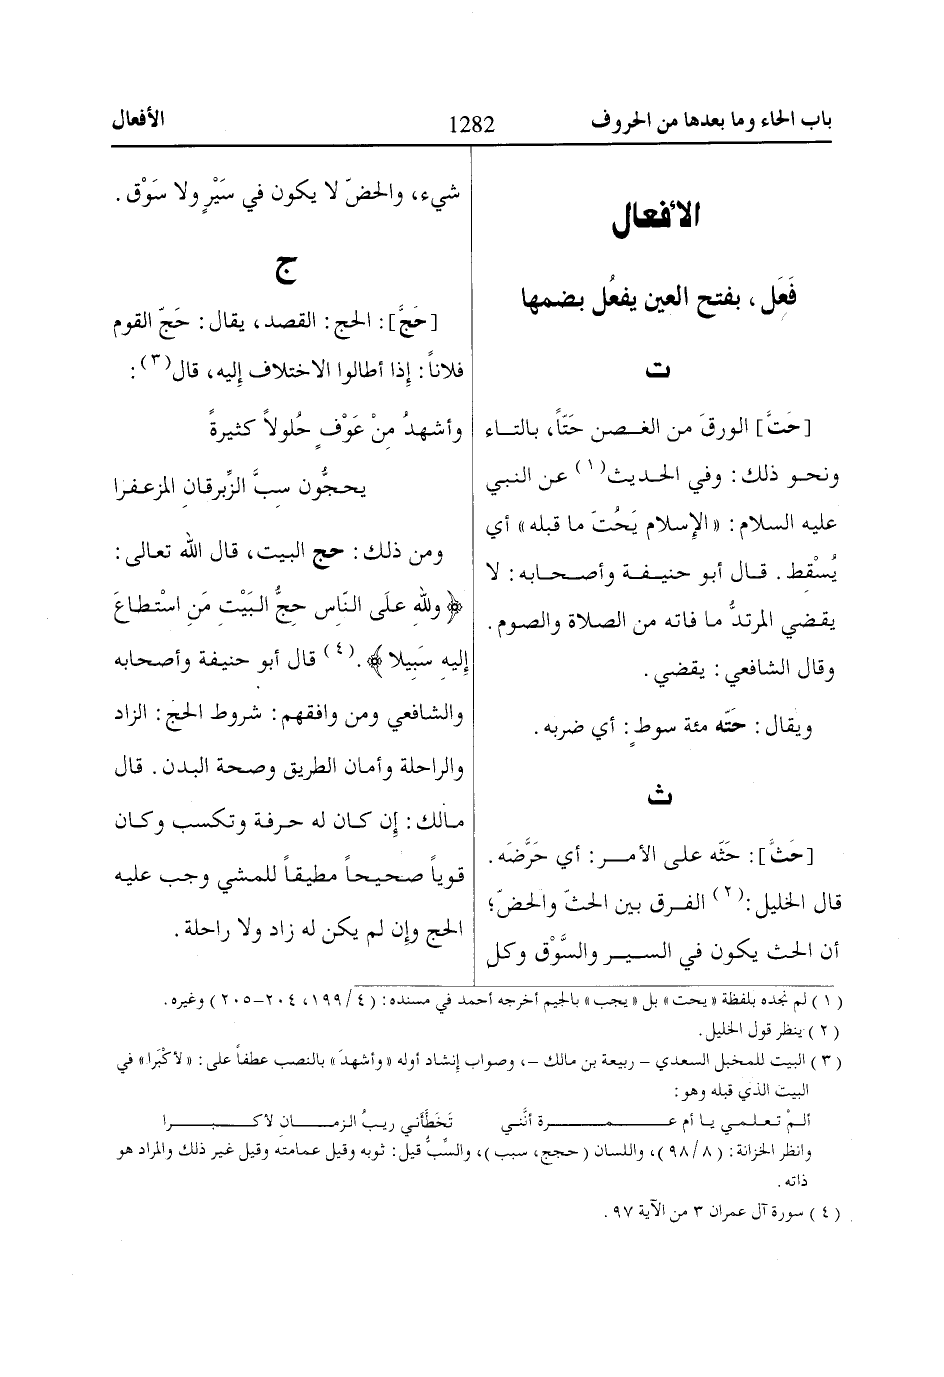 باب الحاء وما بعدها من الحروف 1282 الأفعال
الأفعال
فَعَل، بفتح العين يفعُل بضمها
ت
[حَتَّ] الورقَ من الغصن حَتّاً، بالتاء
ونحو ذلك: وفي الحديث(١) عن النبي
عليه السلام: «الإسلام يَحُتّ ما قبله» أي
يُسْقط. قال أبو حنيفة وأصحابه: لا
يقضي المرتدُّ ما فاته من الصلاة والصوم.
وقال الشافعي: يقضي.
ويقال: حتّه مئة سوطٍ: أي ضربه.
ث
[حَثَّ]: حَثّه على الأمر: أي حَرَّضَه.
قال الخليل:(٢) الفرق بين الحثّ والحضّ؛
أن الحث يكون في السير والسَّوْق وكل
شيء، والحضّ لا يكون في سَيْرٍ ولا سَوْق.
ج
[حَجَّ]: الحج: القصد، يقال: حَجّ القوم
فلاناً: إذا أطالوا الاختلاف إليه، قال(٣):
وأشهدُ مِنْ عَوْفٍ حُلولاً كثيرةً
يحجُّون سبَّ الزِّبرقانِ المزعفرا
ومن ذلك: حج البيت، قال الله تعالى:
﴿ولله علَى النَّاسِ حِجُّ البَيْت مَنِ اسْتطاعَ
إليه سَبِيلا﴾.(٤) قال أبو حنيفة وأصحابه
والشافعي ومن وافقهم: شروط الحج: الزاد
والراحلة وأمان الطريق وصحة البدن. قال
مالك: إن كان له حرفة وتكسب وكان
قوياً صحيحاً مطيقاً للمشي وجب عليه
الحج وإن لم يكن له زاد ولا راحلة.
(١) لم نجده بلفظة «يحت» بل «يجب» بالجيم أخرجه أحمد في مسنده: (٤/١٩٩، ٢٠٤-٢٠٥) وغيره.
(٢) ينظر قول الخليل.
(٣) البيت للمخبل السعدي - ربيعة بن مالك -، وصواب إنشاد أوله «وأشهدَ» بالنصب عطفاً على: «لأكْبَرا» في
البيت الذي قبله وهو:
ألمْ تعلمي يا أم عمرة أنَّني تَخطَّأني ريبُ الزمان لأكبرا
وانظر الخزانة: (٨/٩٨)، واللسان (حجج، سبب)، والسِّبُّ قيل: ثوبه وقيل عمامته وقيل غير ذلك والمراد هو
ذاته.
(٤) سورة آل عمران ٣ من الآية ٩٧.